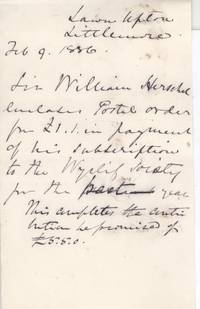 Lawn Upton
Littlemore
Feb 9. 1886.
Sir William Herschel
encloses Postal order
for £1.1. in payment
of his subscription
to the Wyclif Society
for the past year
This completes the contri
bution he promised of
£5.5.0.